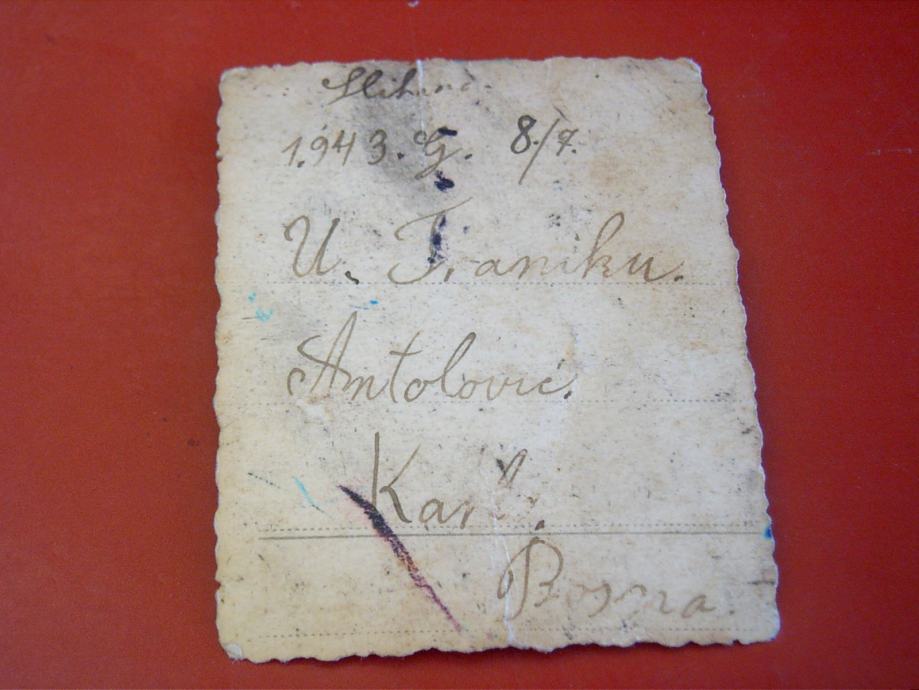 Slikano.
1943. G. 8/7.
U. Travniku.
Antolović.
Karl.
Bosna.